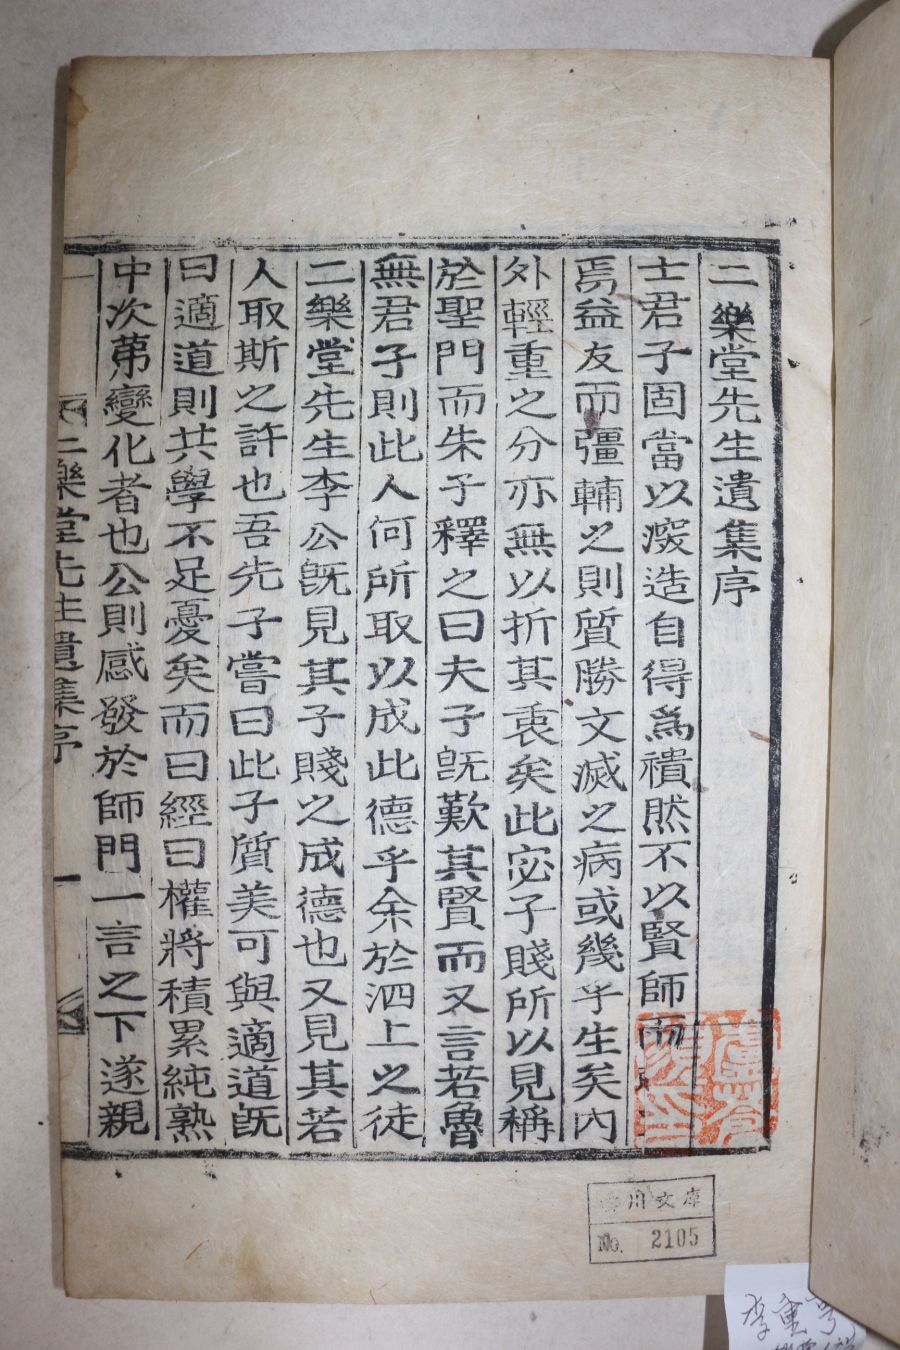 二樂堂先生遺集序
士君子固當以㴱造自得爲䙡然不以賢師而
焉益友而彊輔之則質勝文滅之病或幾乎生矣內
外輕重之分亦無以折其衷矣此宓子賤所以見稱
於聖門而朱子釋之曰夫子旣歎其賢而又言若魯
無君子則此人何所取以成此德乎余於泗上之徒
二樂堂先生李公旣見其子賤之成德也又見其若
人取斯之許也吾先子嘗曰此子質美可與適道旣
曰適道則共學不足憂矣而曰經曰權將積累純熟
中次苐變化者也公則感發於師門一言之下遂親
二樂堂先生遺集序
一
川文庫
No. 2105
李重